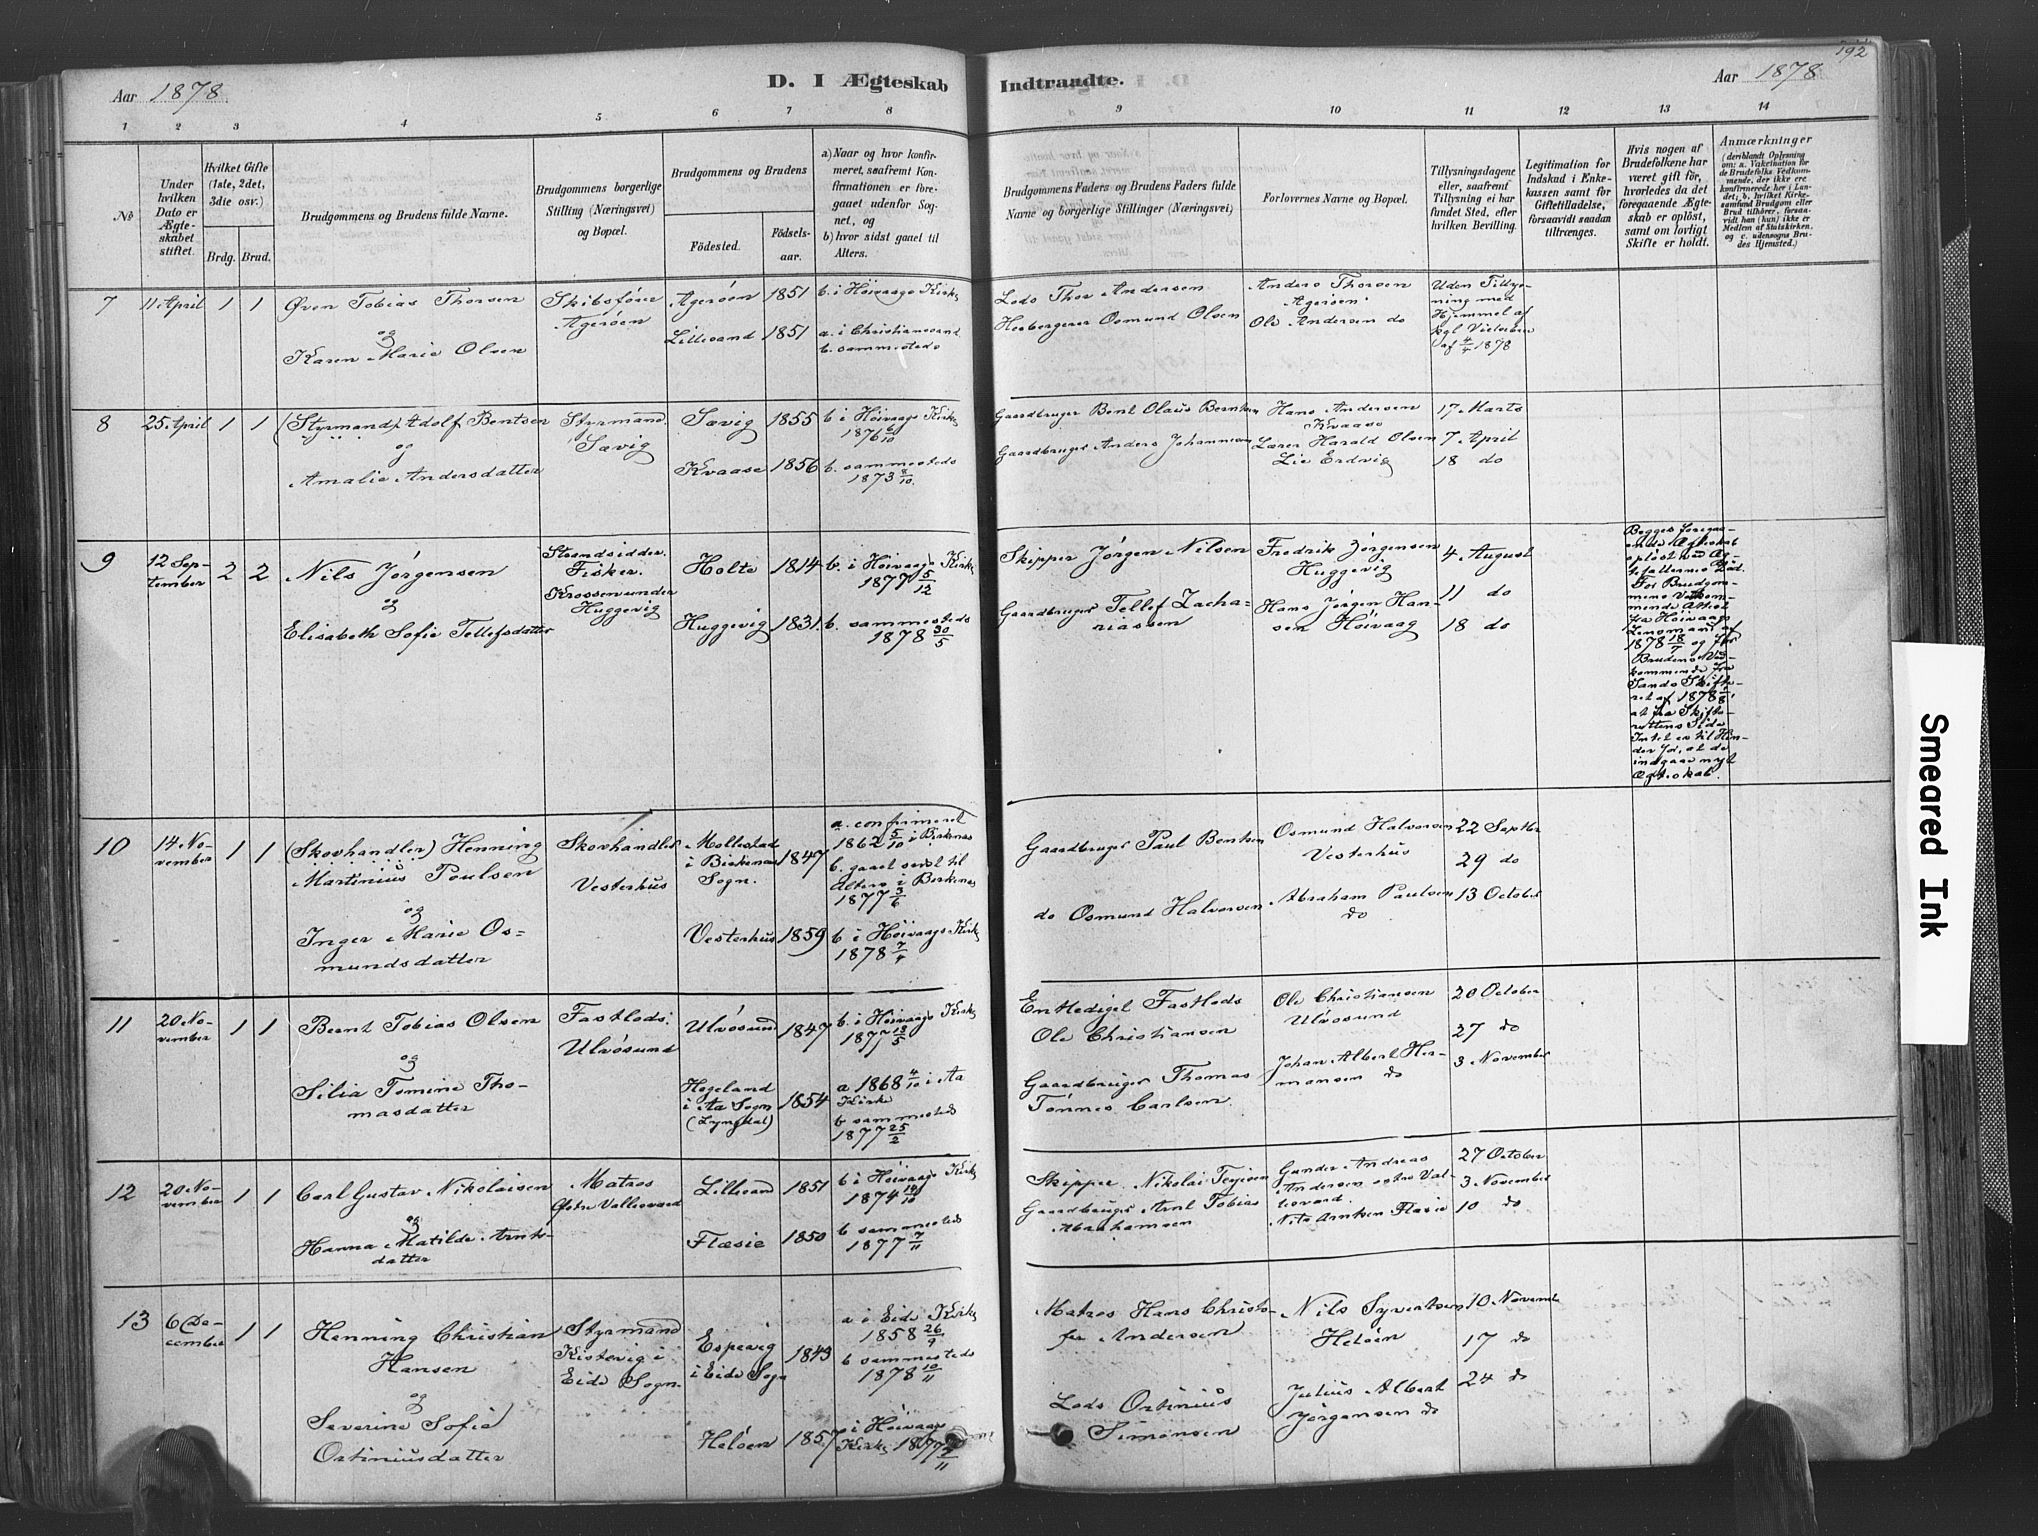 192
Aar 1878
D. I Ægteskab
Indtraadte.
Aar 1878
1 2 3 4 5 6 7 8
9 10 11 12 13 14
No
Under hvilken Dato er Ægteskabet stiftet.
Hvilket Gifte (1ste, 2det, 3die osv.)
Brdg. Brud.
Brudgommens og Brudens fulde Navne.
Brudgommens borgerlige Stilling (Næringsvei) og Bopæl.
Brudgommens og Brudens
Födested.
Födselsaar.
a) Naar og hvor konfirmeret, saafremt Konfirmationen er foregaaet udenfor Sognet, og
b) hvor sidst gaaet til Alters.
Brudgommens Faders og Brudens Faders fulde Navne og borgerlige Stillinger (Næringsvei)
Forlovernes Navne og Bopæl.
Tillysningsdagene eller, saafremt Tillysning ei har fundet Sted, efter hvilken Bevilling.
Legitimation for Indskud i Enkekassen samt for Giftetilladelse, forsaavidt saadan tiltrænges.
Hvis nogen af Brudefolkene har været gift för, hvorledes da det foregaaende Ægteskab er oplöst, samt om lovligt Skifte er holdt.
Anmærkninger
(deriblandt Oplysning om: a. Vakcination for de Brudefolks Vedkommende, der ikke ere konfirmerede her i Landet; b. hvilket Kirkesamfund Brudgom eller Brud tilhörer, forsaavidt han (hun) ikke er Medlem af Statskirken, og c. udensogns Brudes Hjemsted.)
7
11 April
1 1
Øven Tobias Thorsen
og
Karen Marie Olsen
Skibsfører
Agerøen
Agerøen 1851
Lillesand 1851
b. i Høivaags Kirke
a. i Christianssand
b. sammesteds
Lods Thor Andersen
Herbergerer Osmund Olsen
Anders Thorsen
Agerøen
Ole Andersen do
Uden Tillys-
ning med
Hjemmel af
kgl Victorbrev
af 4/4 1878
8
25 April
1 1
(Styrmand) Adolf Bentsen
og
Amalie Andersdatter
Styrmand
Sævig
Sævig 1855
Kvaase 1856
b i Høivaags Kirke
1876 6/10
b. sammesteds
1873 8/10.
Gaardbruger Bent Olaus Berntsen
Gaardbruger Anders Johannesen
Hans Andersen
Kvaase
Lærer Harald Olsen
Lie Erdvig
17 Marts
7 April
18 do
9
12 Sep-
tember
2 2
Nils Jørgensen
og
Elisabeth Sofie Tellefsdatter
Strandsidder.
Fisker.
Krossen under
Huggevig
Holte 1814
Huggevig 1831.
b. i Høivaags Kirke
1877 5/12
b. sammesteds
1878 30/5
Skipper Jørgen Nilsen
Gaardbruger Tellef Zacha-
riassen
Fredrik Jørgensen
Huggevig
Hans Jørgen Han-
sen Høivaag
4 August
11 do
18 do
Begges foregaa-
ende Ægteskab
opløst ved Æg-
tefællernes Død.
For Brudgom-
mens Vedkom-
mende Attest
fra Høivaags
Lensmand af
1878 18/7 og for
Brudens Ved-
kommende fra
Sands Skifte-
ret af 1878 1/8
at fra Skifte-
rettens Side
Intet er til Hin-
der for, at de
indgaae nyt
Ægteskab.
10
14 No-
vember
1 1
(Skovhandler) Henning
Martinius Poulsen
og
Inger Marie Os-
mundsdatter
Skovhandler
Vesterhus
Mollestad
i Birkenæs
Sogn. 1847
Vesterhus 1859
a. confirmeret
1862 5/10 i Birkenæs
b. gaaet sidst til
Alters i Birkenæs
1877 3/6
b i Høivaags Kirke
1878 7/4
Gaardbruger Paul Bentsen
do Osmund Halvorsen
Osmund Halvorsen
Vesterhus
Abraham Paulsen
do
22 Septbr
29 do
13 October
11
20 No-
vember
1 1
Bernt Tobias Olsen
og
Silia Tomine Tho-
masdatter
Fastlods.
Ulvøsund
Ulvøsund 1847
Høgeland
i Aa Sogn
(Lyngdal) 1854
b. i Høivaags Kirke
1877 18/5
a 1868 4/10 i Aa
Kirke
b sammesteds
1877 25/2
Entlediget Fastlods
Ole Christiansen
Gaardbruger Thomas
Tønnes Carlsen.
Ole Christiansen
Ulvøsund
Johan Albert Her-
mansen do
20 October
27 do
3 November
12
20 No-
vember
1 1
Carl Gustav Nikolaisen
og
Hanna Matilde Arnts-
datter
Matros
Østre Vallesværd
Lillesand 1851
Flæsie 1850
b i Høivaags Kirke
1874 14/10
b sammesteds
1877 7/11
Skipper Nikolai Terjesen
Gaardbruger Arnt Tobias
Abrahamsen
Gunder Andreas
Andersen østre Val-
lesværd.
Nils Arntsen Flæsie
27 October
3 November
10 do
13
6 De-
cember
1 1
Henning Christian
Hansen
og
Severine Sofie
Ortiniusdatter
Styrmand
Kistevig i
Eide Sogn.
Espevig
i Eide Sogn 1843
Heløen 1857
a i Eide Kirke
1858 26/9
b sammesteds
1878 10/11
b i Høivaags
Kirke 1877 /11
Matros Hans Christo-
fer Andersen
Lods Ortinius
Simonsen
Nils Syvertsen
Heløen
Julius Albert
Jørgensen do
10 Novemb
17 do
24 do
Smeared Ink